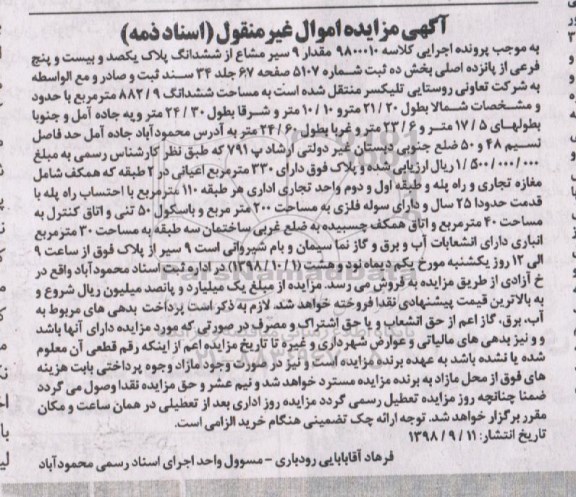 آگهی مزایده اموال غیر منقول (اسناد ذمه)
به موجب پرونده اجرایی کلاسه ۹۸۰۰۰۱۰ مقدار ۹ سیر مشاع از ششدانگ پلاک یکصد و بیست و پنج
فرعی از پانزده اصلی بخش ده ثبت شماره ۵۱۰۷ صفحه ۶۷ جلد ۳۴ سند ثبت و صادر و مع الواسطه
به شرکت تعاونی روستایی تلیکسر منتقل شده است به مساحت ششدانگ ۸۸۲/۹ مترمربع با حدود
و مشخصات شمالا بطول ۲۱/۲۰ مترو ۱۰/۱۰ متر و شرقا بطول ۲۴/۳۰ متر و به جاده آمل و جنوبا
بطولهای ۱۷/۵ متر و ۲۲/۶ متر و غربا بطول ۲۴/۶۰ متر به آدرس محمودآباد جاده آمل حد فاصل
نسیم ۴۸ و ۵۰ ضلع جنوبی دبستان غیر دولتی ارشاد پ ۷۹۱ که طبق نظر کارشناس رسمی به مبلغ
۱/۵۰۰/۰۰۰/۰۰۰ ریال ارزیابی شده و پلاک فوق دارای ۳۳۰ مترمربع اعیانی در ۲ طبقه که همکف شامل
مغازه تجاری و راه پله و طبقه اول و دوم واحد تجاری اداری هر طبقه ۱۱۰ مترمربع با احتساب راه پله با
قدمت حدودا ۲۵ سال و دارای سوله فلزی به مساحت ۲۰۰ متر مربع و باسکول ۵۰ تنی و اتاق کنترل به
مساحت ۴۰ مترمربع و اتاق همکف چسبیده به ضلع غربی ساختمان سه طبقه به مساحت ۳۰ مترمربع
انباری دارای انشعابات آب و برق و گاز نما سیمان و بام شیروانی است ۹ سیر از پلاک فوق از ساعت ۹
الی ۱۲ روز یکشنبه مورخ یکم دیماه نود و هشت (۱۳۹۸/۱۰/۱) در اداره ثبت اسناد محمودآباد واقع در
خ آزادی از طریق مزایده به فروش می رسد. مزایده از مبلغ یک میلیارد و پانصد میلیون ریال شروع و
به بالاترین قیمت پیشنهادی نقدا فروخته خواهد شد. لازم به ذکر است پرداخت بدهی های مربوط به
آب، برق، گاز اعم از حق انشعاب و یا حق اشتراک و مصرف در صورتی که مورد مزایده دارای آنها باشد
و و نیز بدهی های مالیاتی و عوارض شهرداری و غیره تا تاریخ مزایده اعم از اینکه رقم قطعی آن معلوم
شده یا نشده باشد به عهده برنده مزایده است و نیز در صورت وجود مازاد وجوه پرداختی بابت هزینه
های فوق از محل مازاد به برنده مزایده مسترد خواهد شد و نیم عشر و حق مزایده نقدا وصول می گردد
ضمنا چنانچه روز مزایده تعطیل رسمی گردد مزایده روز اداری بعد از تعطیلی در همان ساعت و مکان
مقرر برگزار خواهد شد. توجه ارائه چک تضمینی هنگام خرید الزامی است.
تاریخ انتشار: ۱۳۹۸/۹/۱۱
فرهاد آقابابایی رودباری - مسوول واحد اجرای اسناد رسمی محمودآباد